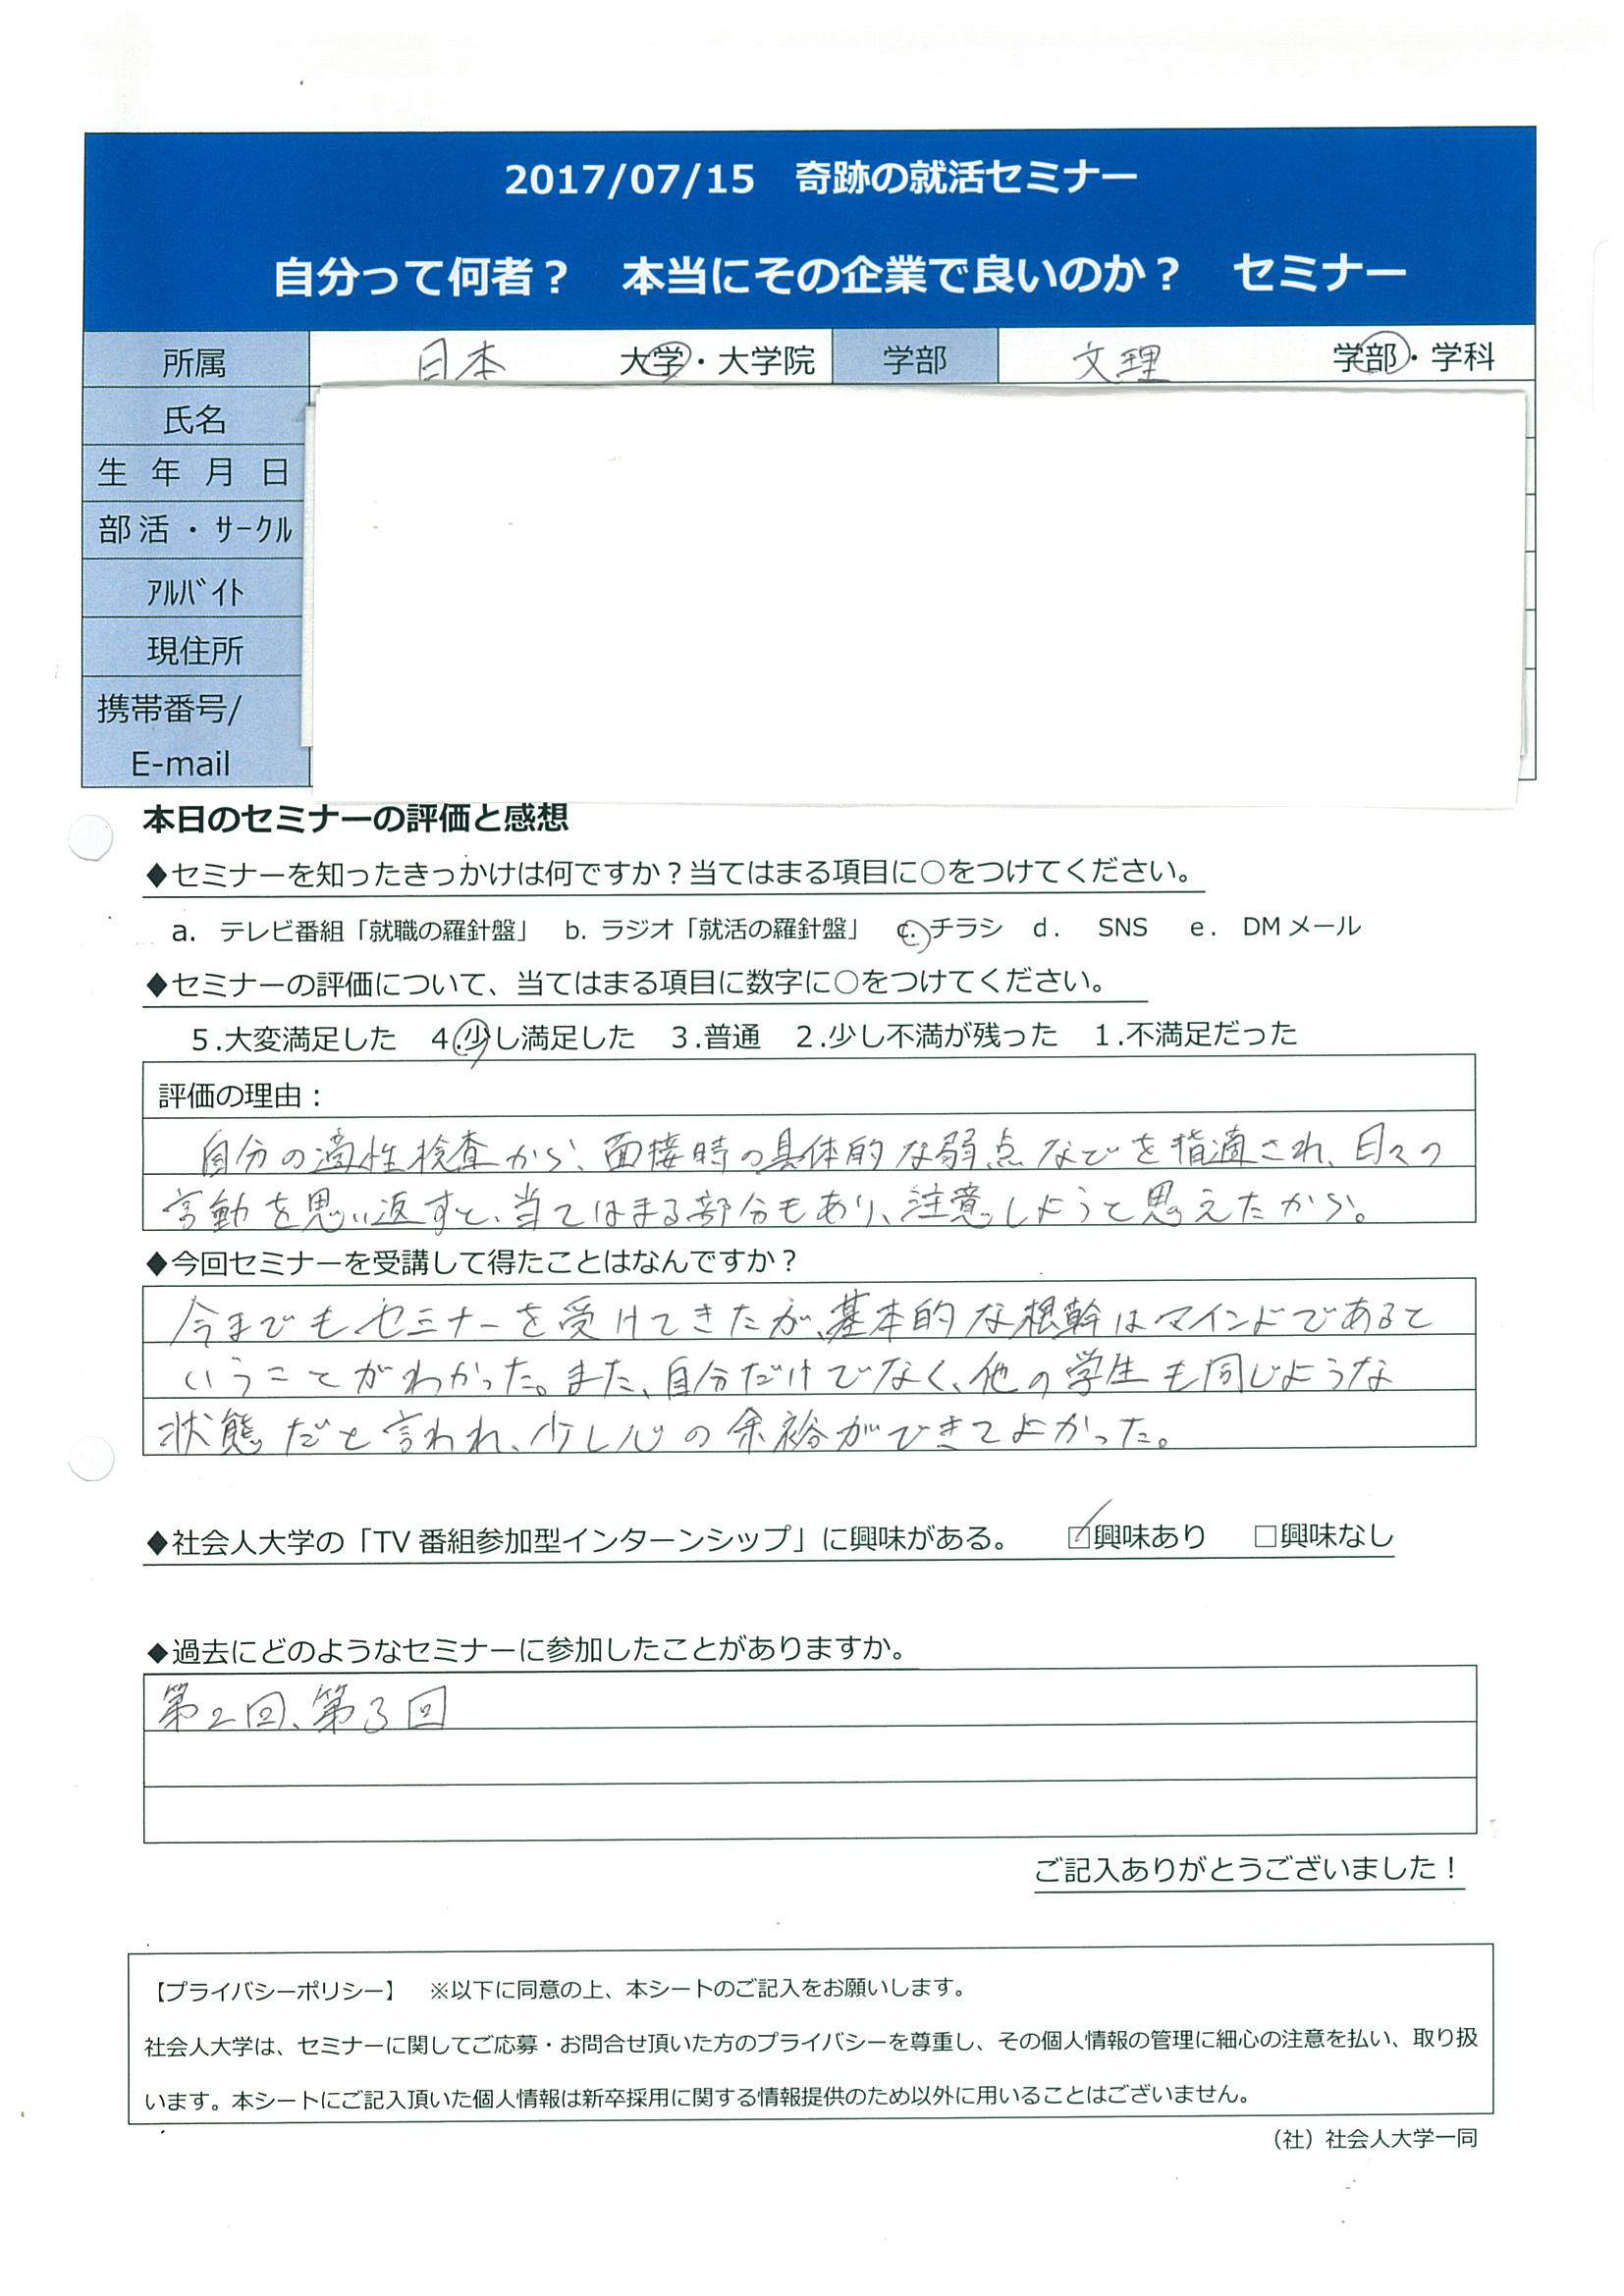 2017/07/15　奇跡の就活セミナー
自分って何者？　本当にその企業で良いのか？　セミナー
所属　日本　大学・大学院　学部　文理　学部・学科
氏名
生年月日
部活・ｻｰｸﾙ
ｱﾙﾊﾞｲﾄ
現住所
携帯番号/
E-mail
本日のセミナーの評価と感想
◆セミナーを知ったきっかけは何ですか？当てはまる項目に○をつけてください。
a. テレビ番組「就職の羅針盤」　b. ラジオ「就活の羅針盤」　c. チラシ　d. SNS　e. DMメール
◆セミナーの評価について、当てはまる項目に数字に○をつけてください。
5.大変満足した　4.少し満足した　3.普通　2.少し不満が残った　1.不満足だった
評価の理由：
自分の適性検査から、面接時の具体的な弱点などを指適され、日々の
言動を思い返すと、当てはまる部分もあり、注意しようと思えたから。
◆今回セミナーを受講して得たことはなんですか？
今までもセミナーを受けてきたが、基本的な根幹はマインドであると
いうことがわかった。また、自分だけでなく、他の学生も同じような
状態だと言われ、少し心の余裕ができてよかった。
◆社会人大学の「TV番組参加型インターンシップ」に興味がある。　☑興味あり　□興味なし
◆過去にどのようなセミナーに参加したことがありますか。
第2回、第3回
ご記入ありがとうございました！
【プライバシーポリシー】　※以下に同意の上、本シートのご記入をお願いします。
社会人大学は、セミナーに関してご応募・お問合せ頂いた方のプライバシーを尊重し、その個人情報の管理に細心の注意を払い、取り扱
います。本シートにご記入頂いた個人情報は新卒採用に関する情報提供のため以外に用いることはございません。
（社）社会人大学一同